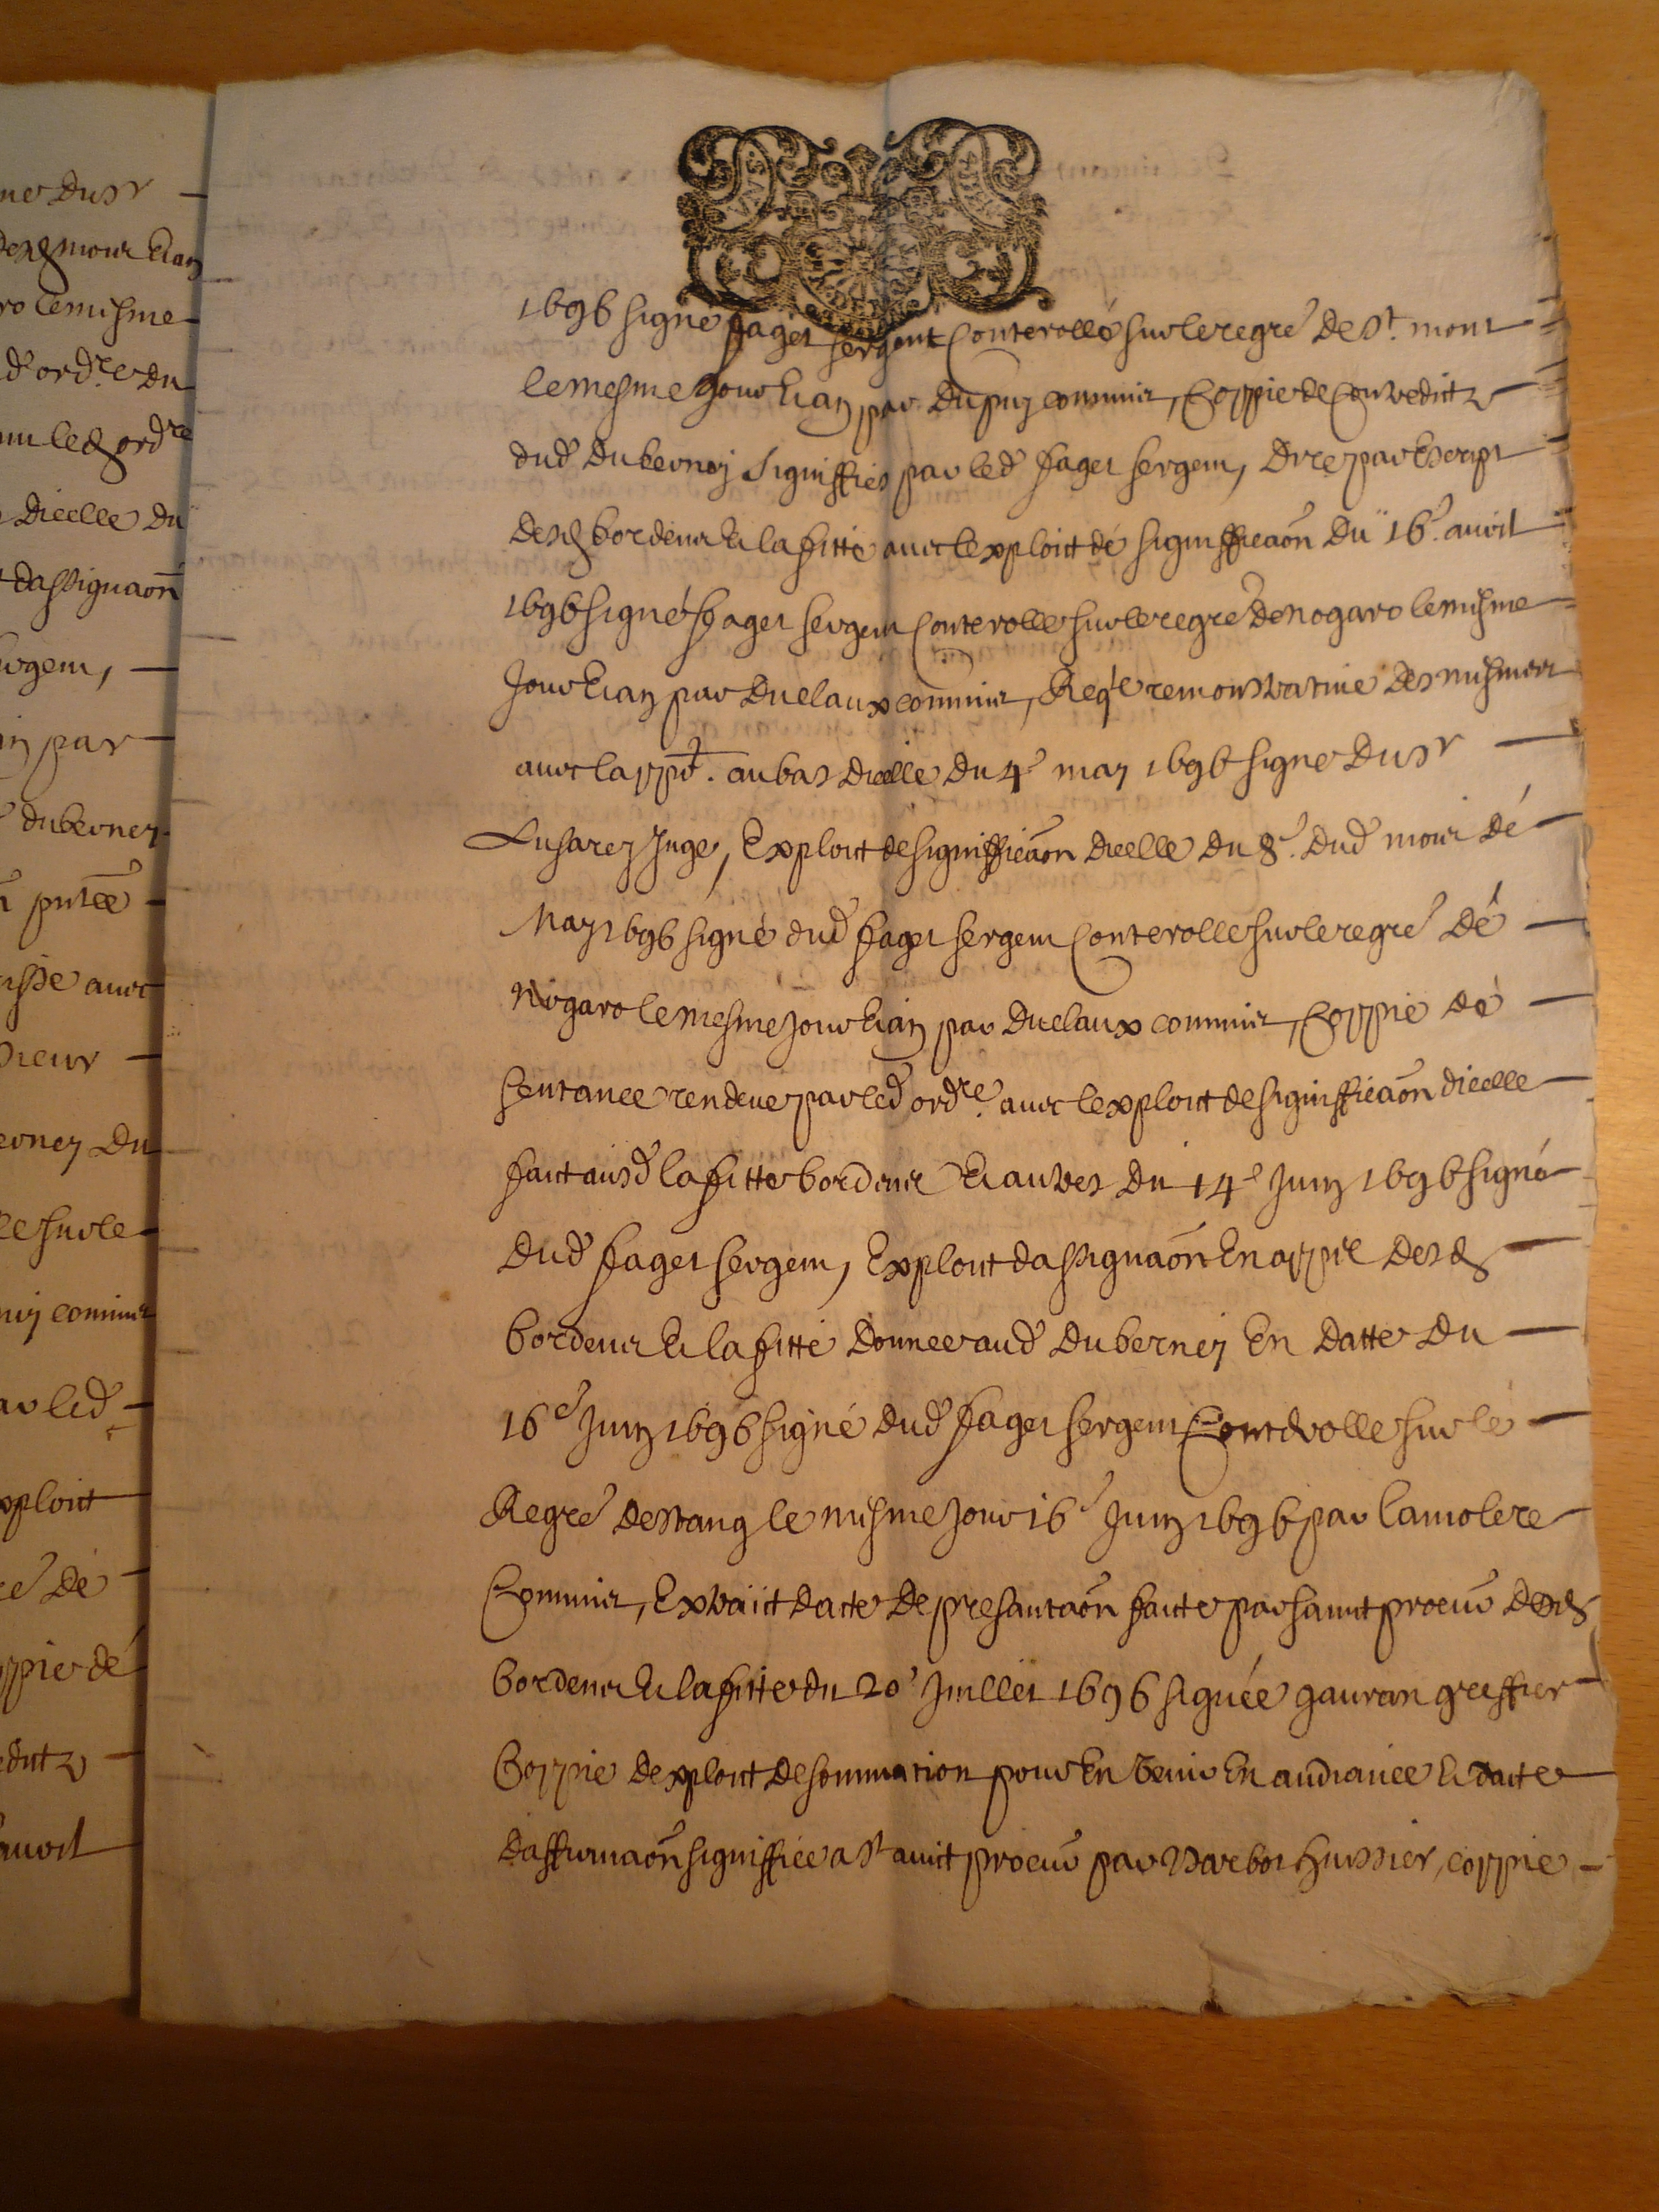 ne du Sr
mour et an
ro le misme
d ordre du
led ordre
dicelle du
dassignaõn
sergem,
par
duberney
puree
avec
sieur
erney du
le sur le
commis
par led
exploict
é dé
coppie dé
avril
1696 signé faget sergent Conterollé sur le regré de St. mont
le mesme Jour et an par Dupuy commis, Coppie de Contredictz
dud duberney signiffies par led faget sergem, dire par Escript
desd bordener et lafitte avec lexploict dé signifficaõn Du 16e. avril
1696 signé faget sergem Conterolle sur le regré de nogaro le misme
Jour et an par Duclaux commis, Reqte remonstrative des mismes
avec lappt. au bas dicelle du 4e may 1696 signe du Sr
Lusarey Juge, Exploict de signifficaõn dicelle du 8e. dud mois dé
May 1696 signé dud faget sergem Conterolle sur le regré dé
Nogaro le mesme Jour et an par Duclaux commis, Coppie dé
sentance rendeue par led ordre. avec lexploict de signifficaõn dicelle
faict ausd lafitte bordener et autres du 14e Juin 1696 signé
dud faget sergem, Exploict dassignaõn En appel desd
bordener et lafitte donnee aud duberney En datte du
16e Juin 1696 signé dud faget sergem Conterolle sur lé
Regré destang le misme Jour 16e Juin 1696 par Lamolere
Commis, Extraict dacte de presantaõn faicte par saint procur desd
bordener et lafitte du 20e Juillet 1696 signée gauran greffier
Coppie dexploict de sommation pour En venir En audiance et dacte
daffirmaõn signiffiee a St avit procur par Narbot huissier, coppie